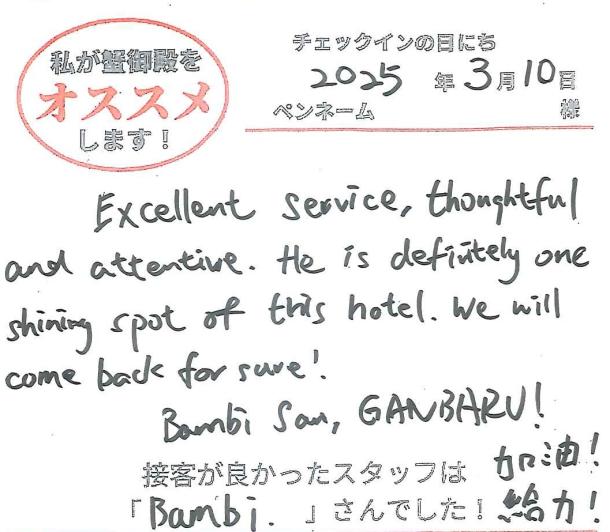 私が蟹御殿を
オススメ
します！
チェックインの日にち
2025 年 3月10日
ペンネーム 様
Excellent service, thoughtful
and attentive. He is definitely one
shining spot of this hotel. We will
come back for sure!
Bambi San, GANBARU!
接客が良かったスタッフは
「Bambi. 」さんでした！
加油！
給力！